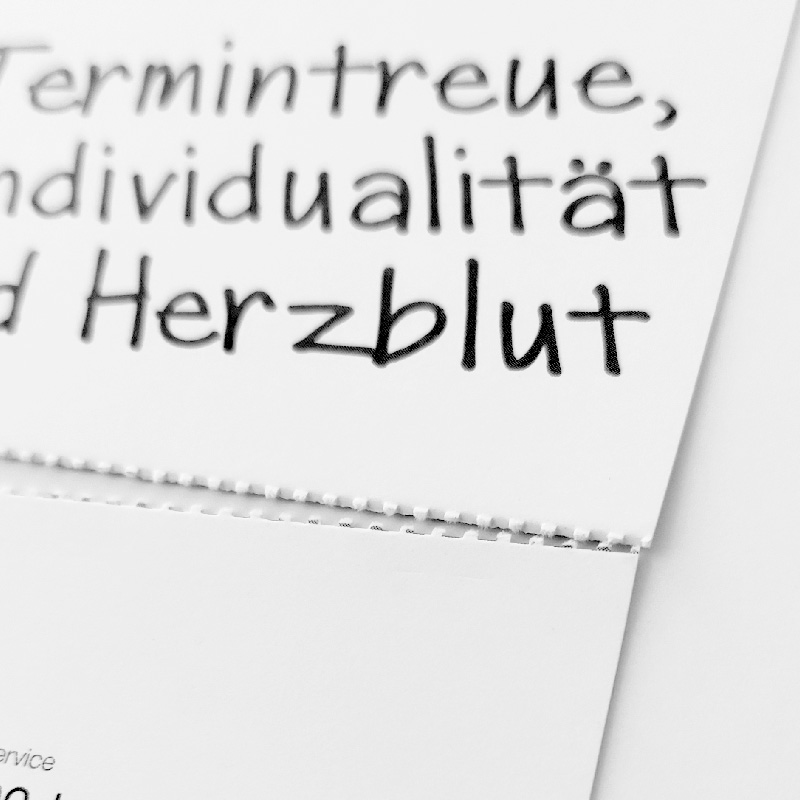 Termintreue,
ndividualität
d Herzblut
ervice